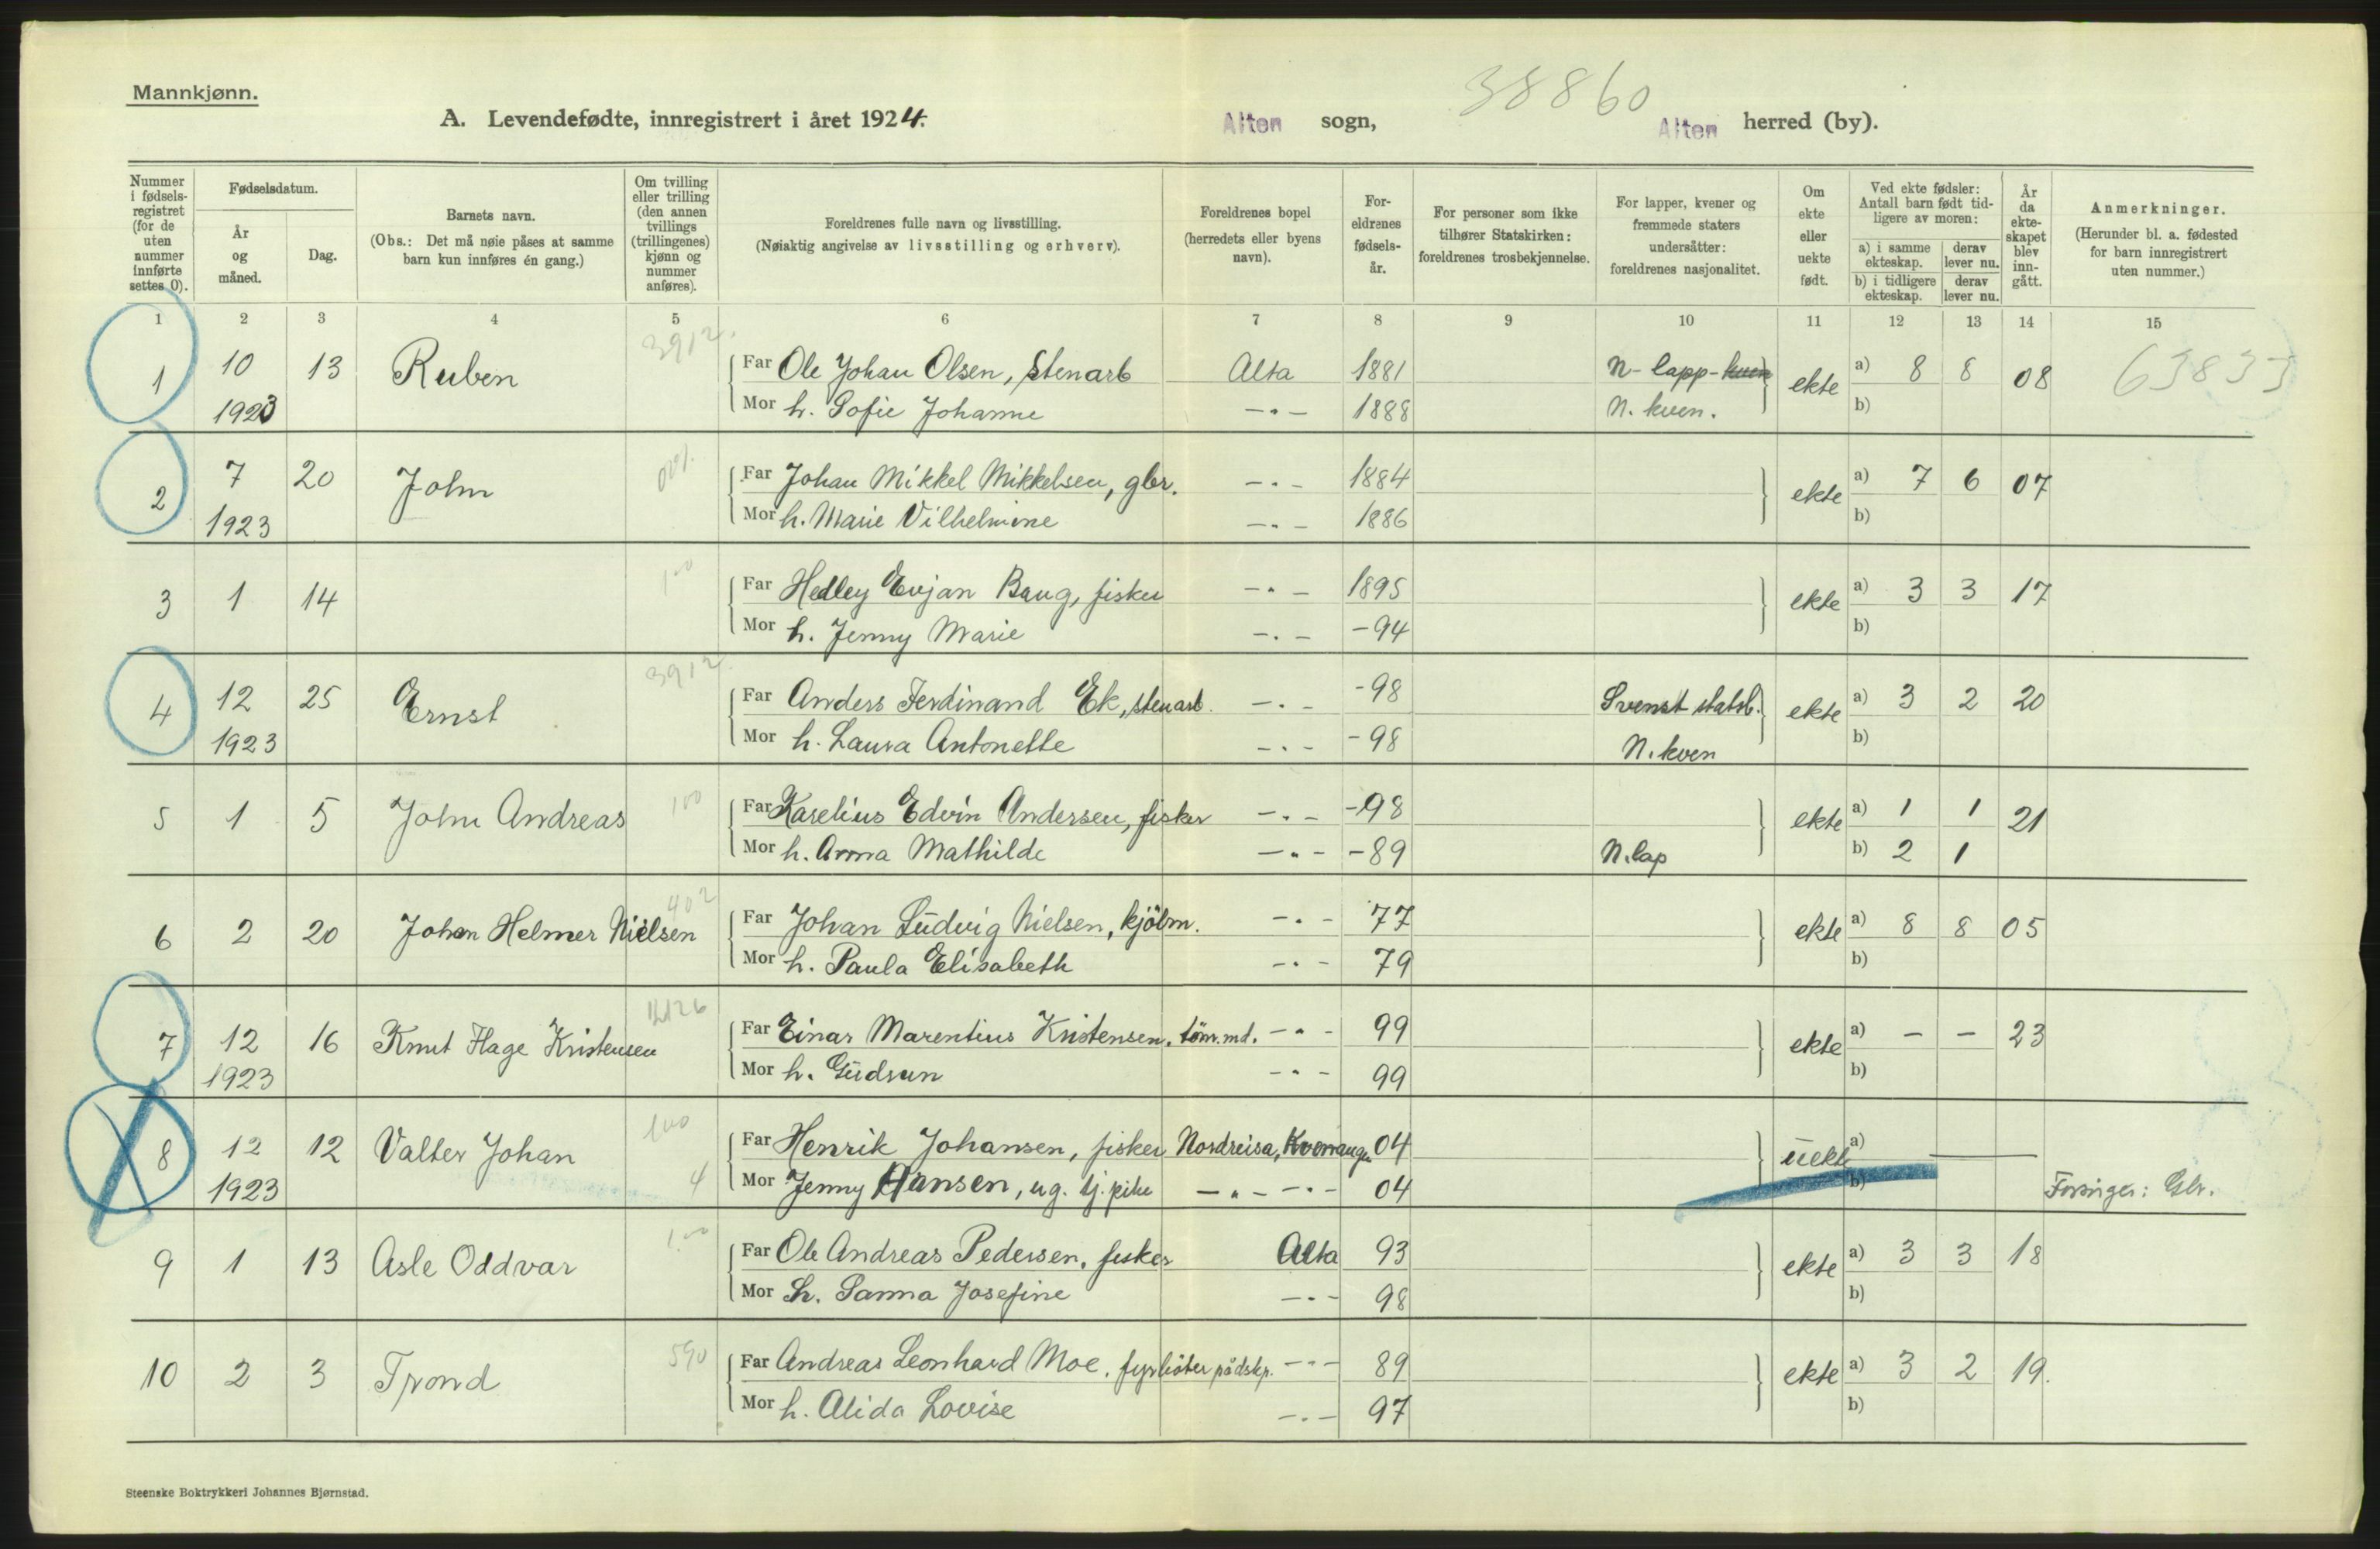 Mannkjønn.
38860
A. Levendefødte, innregistrert i året 1924.
Alten sogn, Alten herred (by).
Nummer i fødselsregistret (for de uten nummer innførte settes 0).
Fødselsdatum.
År og måned.
Dag.
Barnets navn.
(Obs.: Det må nøie påses at samme barn kun innføres én gang.)
Om tvilling eller trilling (den annen tvillings (trillingenes) kjønn og nummer anføres).
Foreldrenes fulle navn og livsstilling.
(Nøiaktig angivelse av livsstilling og erhverv).
Foreldrenes bopel (herredets eller byens navn).
Foreldrenes fødselsår.
For personer som ikke tilhører Statskirken: foreldrenes trosbekjennelse.
For lapper, kvener og fremmede staters undersåtter: foreldrenes nasjonalitet.
Om ekte eller uekte født.
Ved ekte fødsler: Antall barn født tidligere av moren:
a) i samme ekteskap. derav lever nu.
b) i tidligere ekteskap. derav lever nu.
År da ekteskapet blev inngått.
Anmerkninger.
(Herunder bl. a. fødested for barn innregistrert uten nummer.)
1 2 3 4 5 6 7 8 9 10 11 12 13 14 15
1 10 1923 13 Ruben 3912. Far Ole Johan Olsen, Stenarb Alta 1881 N- lapp-kven ekte a) 8 8 08 63833
Mor h. Sofie Johanne -"- 1888 N. kven. b)
2 7 1923 20 John Far Johan Mikkel Mikkelsen, gbr. -"- 1884 ekte a) 7 6 07
Mor h. Marie Vilhelmine -"- 1886 b)
3 1 14 100 Far Hedley Evjan Baug, fisker -"- 1895 ekte a) 3 3 17
Mor h. Jenny Marie -"- -94 b)
4 12 1923 25 Ernst 3912. Far Anders Ferdinand Ek, stenarb. -"- -98 Svensk statsb. ekte a) 3 2 20
Mor h. Laura Antonette -"- -98 N. kven b)
5 1 5 John Andreas 100 Far Karelius Edvin Andersen, fisker -"- -98 ekte a) 1 1 21
Mor h. Anna Mathilde -"- -89 N. lap b) 2 1
6 2 20 Johan Helmer Nielsen 402 Far Johan Ludvig Nielsen, kjöbm. -"- 77 ekte a) 8 8 05
Mor h. Paula Elisabeth -"- 79 b)
7 12 1923 16 Knut Hage Kristensen Far Einar Marentius Kristensen, tömr.md. -"- 99 ekte a) - - 23
Mor h. Gudrun -"- 99 b)
8 12 1923 12 Valter Johan 100 Far Henrik Johansen, fisker Nordreisa, 04 uekte a) —
4 Mor Jenny Hansen, ug. tj.pike -"- -"- 04 b)
9 1 13 Asle Oddvar 100 Far Ole Andreas Pedersen, fisker Alta 93 ekte a) 3 3 18
Mor h. Sanna Josefine -"- 98 b)
10 2 3 Trond 590 Far Andreas Leonhard Moe, fyrböter pådskp. -"- 89 ekte a) 3 2 19.
Mor h. Alida Lovise -"- 97 b)
Steenske Boktrykkeri Johannes Bjørnstad.